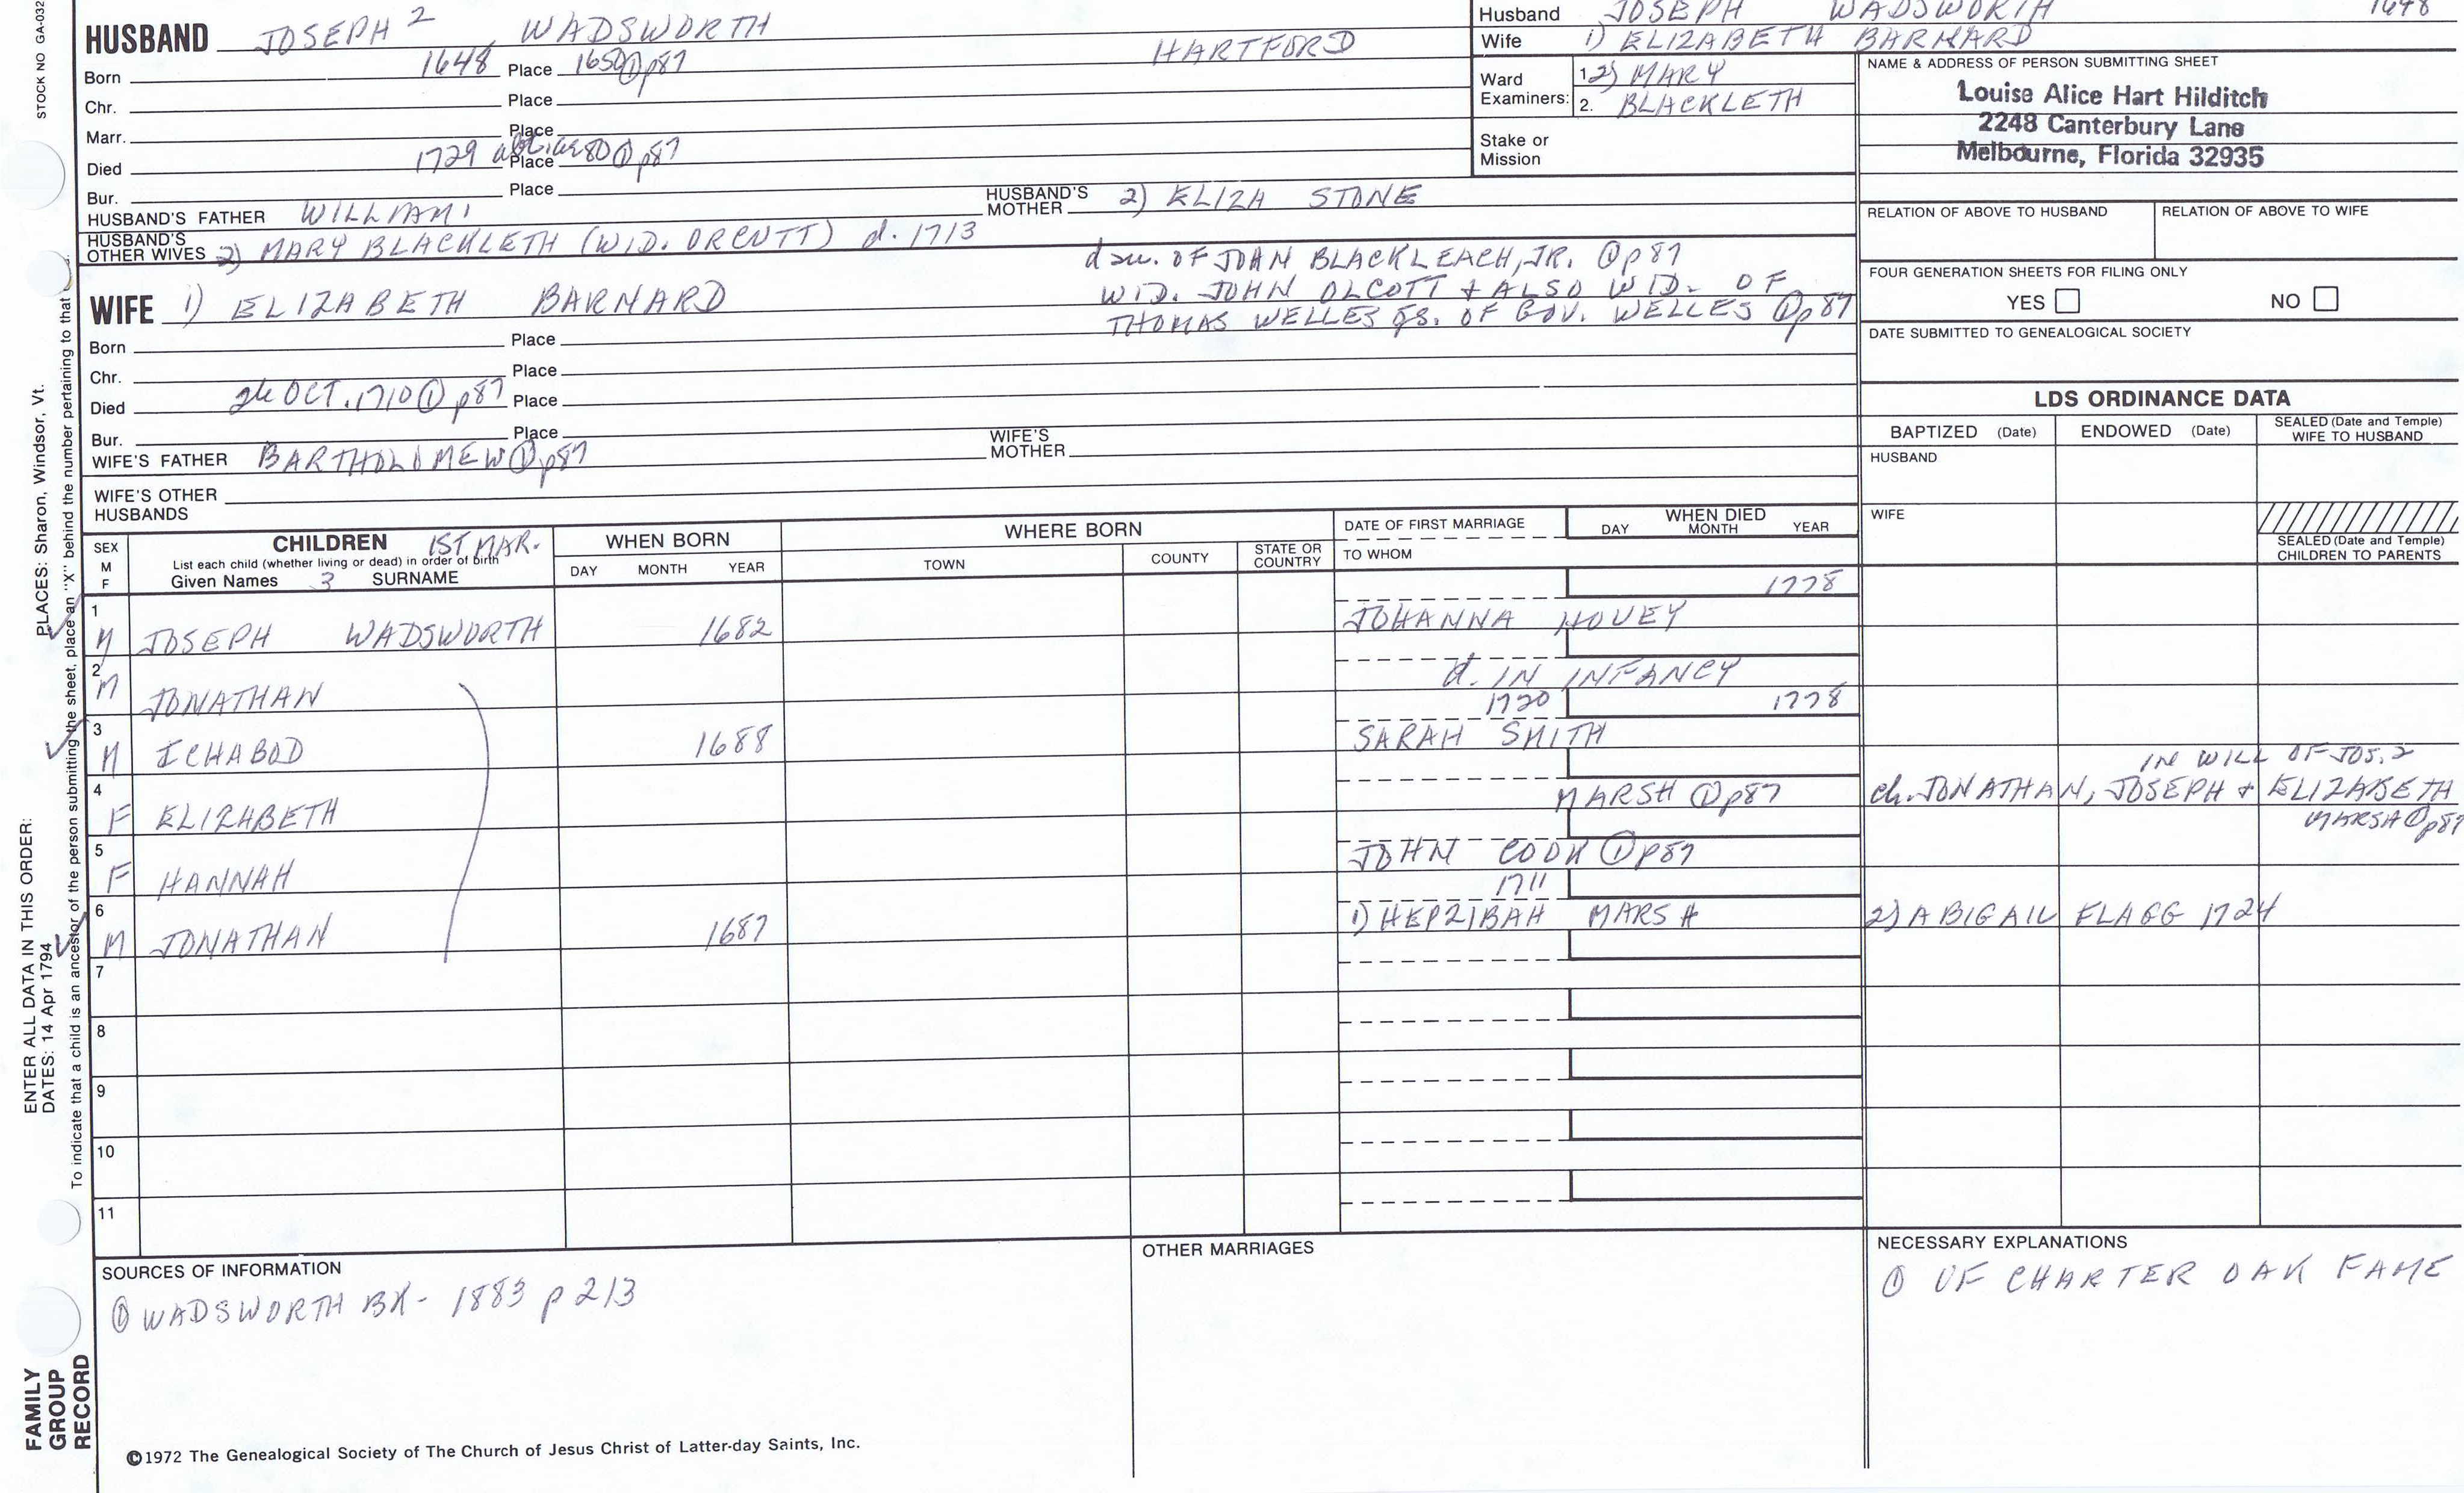 STOCK NO GA-032
HUSBAND JOSEPH 2 WADSWORTH HARTFORD
Born 1648 Place 1650 ① p87
Chr. Place
Marr. Place
Died 1729 Place 80 ① p87
Bur. Place
HUSBAND'S FATHER WILLIAM 1 HUSBAND'S MOTHER 2) ELIZA STONE
HUSBAND'S OTHER WIVES 2) MARY BLACKLETH (WID. ORCUTT) d. 1713
dau. OF JOHN BLACKLEACH, JR. ① p87
WID. JOHN OLCOTT & ALSO WID. OF
THOMAS WELLES gs. OF GOV. WELLES ① p87
WIFE 1) ELIZABETH BARNARD
Born Place
Chr. Place
Died 26 OCT. 1710 ① p87 Place
Bur. Place
WIFE'S FATHER BARTHOLOMEW ① p87 WIFE'S MOTHER
WIFE'S OTHER HUSBANDS
Husband JOSEPH WADSWORTH 1648
Wife 1) ELIZABETH BARNARD
Ward Examiners: 1. 2) MARY
2. BLACKLETH
Stake or Mission
NAME & ADDRESS OF PERSON SUBMITTING SHEET
Louise Alice Hart Hilditch
2248 Canterbury Lane
Melbourne, Florida 32935
RELATION OF ABOVE TO HUSBAND RELATION OF ABOVE TO WIFE
FOUR GENERATION SHEETS FOR FILING ONLY
YES NO
DATE SUBMITTED TO GENEALOGICAL SOCIETY
LDS ORDINANCE DATA
BAPTIZED (Date) ENDOWED (Date) SEALED (Date and Temple) WIFE TO HUSBAND
HUSBAND
WIFE
SEALED (Date and Temple) CHILDREN TO PARENTS
SEX M F CHILDREN 1ST MAR. WHEN BORN WHERE BORN DATE OF FIRST MARRIAGE WHEN DIED
List each child (whether living or dead) in order of birth
Given Names 3 SURNAME DAY MONTH YEAR TOWN COUNTY STATE OR COUNTRY TO WHOM DAY MONTH YEAR
1778
1 M JOSEPH WADSWORTH 1682 JOHANNA HOVEY
2 M JONATHAN d. IN INFANCY
1720 1778
3 M ICHABOD 1688 SARAH SMITH
IN WILL OF JOS. 2
4 F ELIZABETH MARSH ① p87 ch. JONATHAN, JOSEPH & ELIZABETH
MARSH ① p87
5 F HANNAH JOHN COOK ① p87
1711
6 M JONATHAN 1687 1) HEPZIBAH MARSH 2) ABIGAIL FLAGG 1724
7
8
9
10
11
SOURCES OF INFORMATION
① WADSWORTH BK - 1883 p 213
OTHER MARRIAGES
NECESSARY EXPLANATIONS
① OF CHARTER OAK FAME
©1972 The Genealogical Society of The Church of Jesus Christ of Latter-day Saints, Inc.
FAMILY GROUP RECORD
ENTER ALL DATA IN THIS ORDER:
DATES: 14 Apr 1794
PLACES: Sharon, Windsor, Vt.
To indicate that a child is an ancestor of the person submitting the sheet, place an "X" behind the number pertaining to that